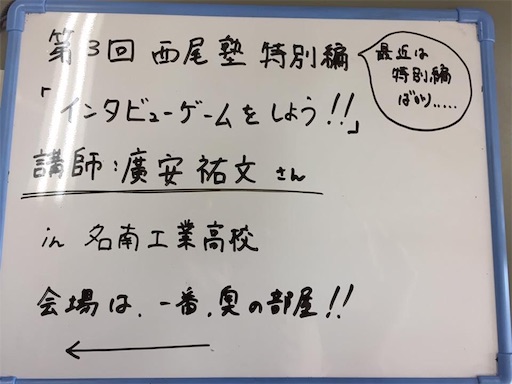 第3回 西尾塾 特別編
最近は
特別編
ばかり.....
「インタビューゲームをしよう!!」
講師:廣安祐文さん
in 名南工業高校
会場は、一番、奥の部屋!!